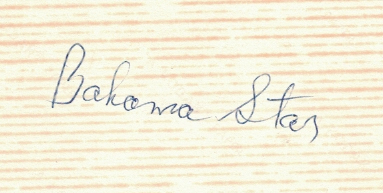 Bahama Star